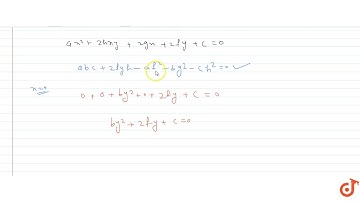 ax² + 2hxy + 2gx + 2fy + c = 0
abc + 2fgh - af² - bg² - ch² = 0 ✓
x=0
0 + 0 + by² + 0 + 2fy + c = 0
by² + 2fy + c = 0